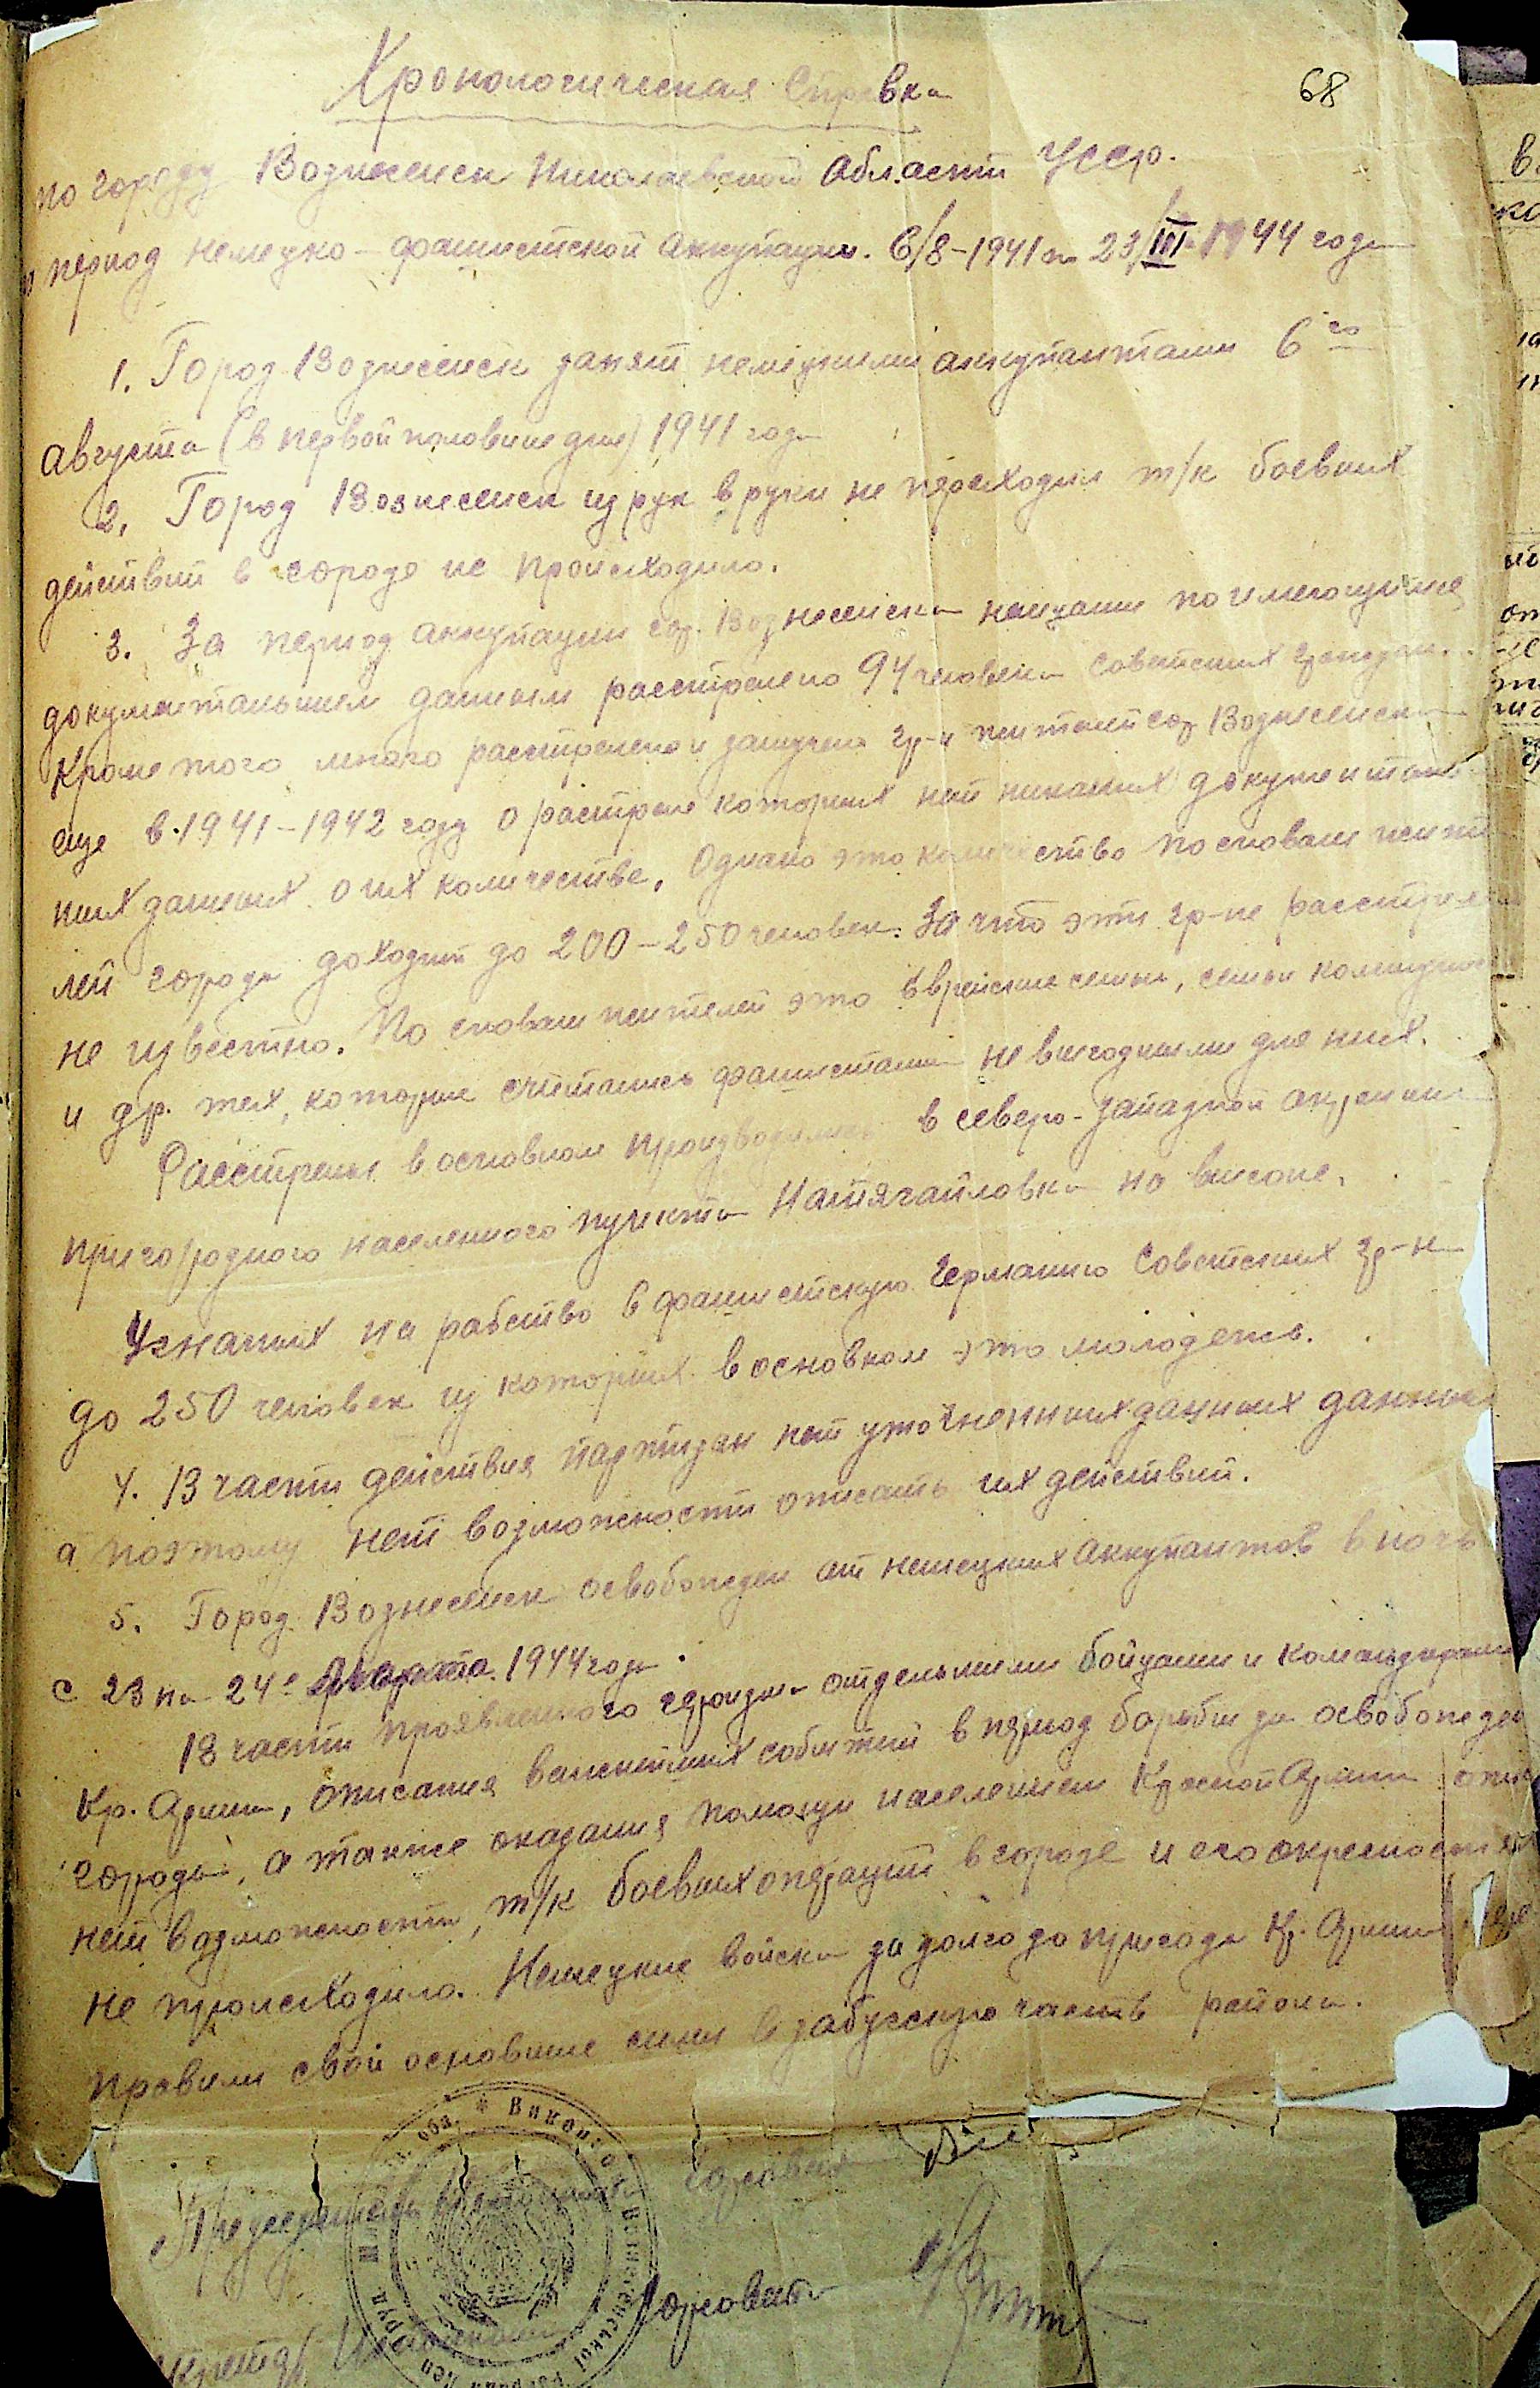 68
Хронологическая Справка
по городу Вознесенск Николаевской Области Усср.
период немецко-фашистской аккупации. 6/8-1941 по 23/III-1944 года
1. Город Вознесенск занят немецкими аккупантами 6го
Августа (в первой половине дня) 1941 года
2. Город Вознесенск из рук в руки не переходил т/к боевых
действий в городе не происходило.
3. За период аккупации гор. Вознесенска немцами по имеющимся
документальным данным расстрелено 94 человека Советских граждан.
Кроме того много расстрелено и замучено гр-н жителей гор Вознесенска
еще в 1941-1942 году о растреле которых нет никаких документаль
ных данных о их количестве. Однако это количество по словам жите
лей города доходит до 200-250 человек. За что эти гр-не расстреле
не известно. По словам жителей это Еврейские семьи, семьи коммунис
и др. тех, которые считались фашистами не выгодными для них.
Расстрелы в основном производились в северо-западной окраине
пригородного населенного пункта Натягайловка на высоте.
Угнаных на рабство в фашистскую Германию Советских гр-н
до 250 человек из которых в основном это молодежь.
4. В части действия партизан нет уточненных данных
а поэтому нет возможности описать их действий.
5. Город Вознесенск освобожден от немецких Аккупантов в ночь
с 23 на 24е Марта 1944 года.
В части проявленного героизма отдельными бойцами и командирами
Кр. Армии, описания важнейших событий в период борьбы за освобожден
города, а также оказания помощи населением Красной Армии
нет возможности, т/к боевых операций в городе и его окресностях
не происходило. Немецкие войска за долго до прихода Кр. Армии
правили свои основные силы в забугскую часть района.
Председатель Горсовета
Исполкома Горсовета